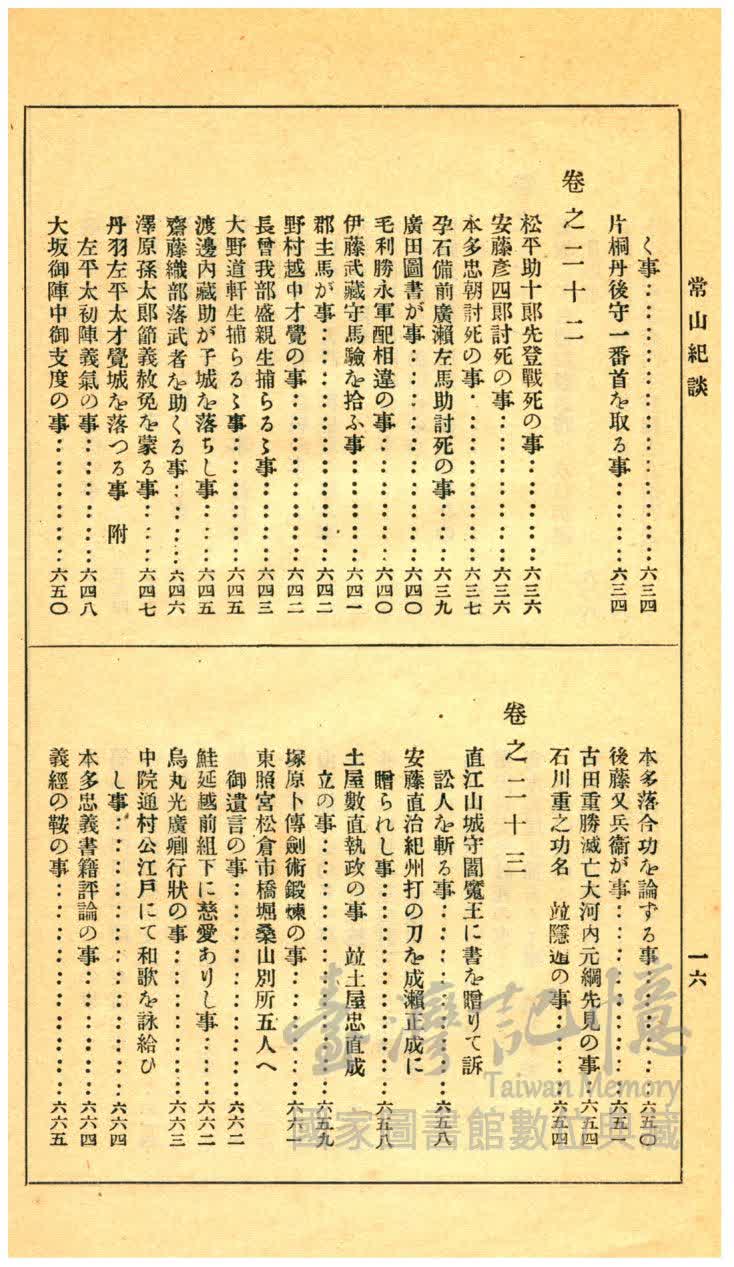 常山紀談
一六
く事……………………六三四
片桐丹後守一番首を取る事………六三四
卷之二十二
松平助十郎先登戰死の事………六三六
安藤彥四郎討死の事…………六三六
本多忠朝討死の事……………六三七
孕石備前廣瀨左馬助討死の事……六三九
廣田圖書が事………………六四〇
毛利勝永軍配相違の事…………六四〇
伊藤武藏守馬驗を拾ふ事………六四一
郡主馬が事…………………六四二
野村越中才覺の事……………六四二
長曾我部盛親生捕らるゝ事………六四三
大野道軒生捕らるゝ事…………六四五
渡邊內藏助が子城を落ちし事……六四五
齋藤織部落武者を助くる事………六四六
澤原孫太郎節義赦免を蒙る事……六四七
丹羽左平太才覺城を落つる事 附
左平太初陣義氣の事…………六四八
大坂御陣中御支度の事…………六五〇
本多落合功を論ずる事…………六五〇
後藤又兵衞が事………………六五一
古田重勝滅亡大河內元綱先見の事…六五四
石川重之功名 竝隱遁の事………六五四
卷之二十三
直江山城守閻魔王に書を贈りて訴
訟人を斬る事………………六五八
安藤直治紀州打の刀を成瀨正成に
贈られし事…………………六五八
土屋數直執政の事 竝土屋忠直成
立の事……………………六五九
塚原卜傳劍術鍛煉の事…………六六一
東照宮松倉市橋堀桑山別所五人へ
御遺言の事…………………六六二
鮭延越前組下に慈愛ありし事……六六二
烏丸光廣卿行狀の事……………六六三
中院通村公江戶にて和歌を詠給ひ
し事………………………六六四
本多忠義書籍評論の事…………六六四
義經の鞍の事………………六六五
臺灣記憶
Taiwan Memory
國家圖書館數位典藏